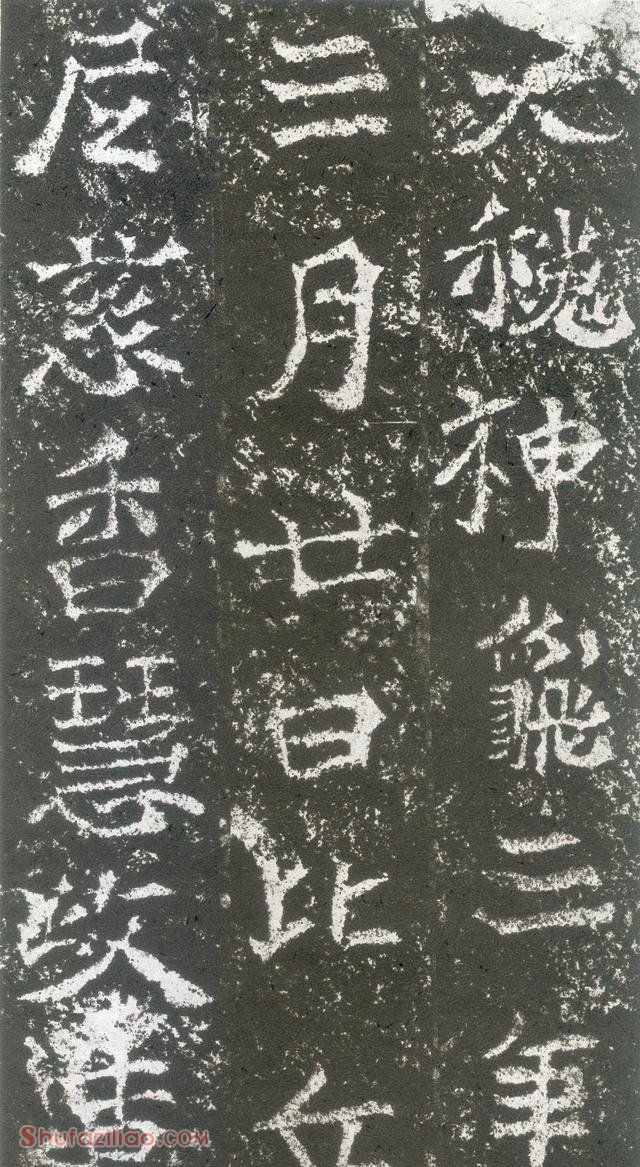 大魏神龜三年
三月廿日比丘
尼慈香慧政造
Shufaziliao.com